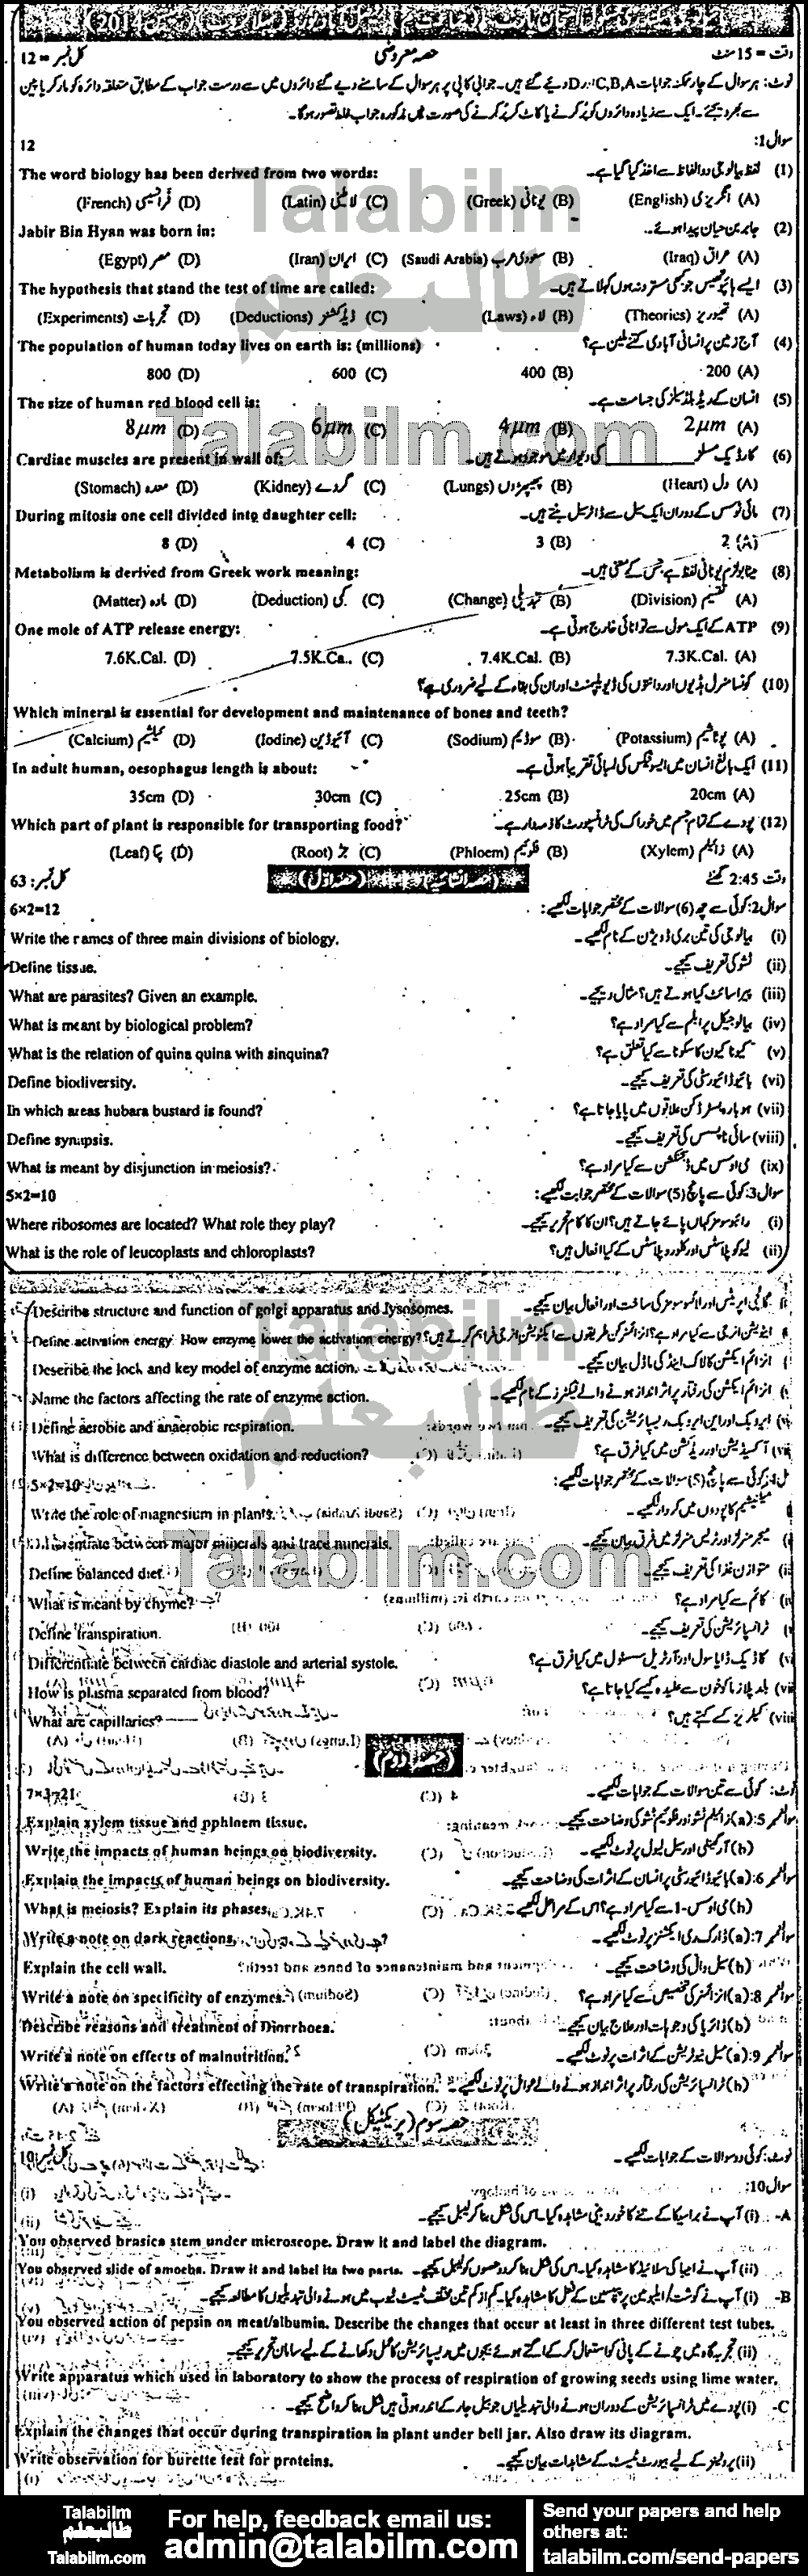 وقت = 15 منٹ حصہ معروضی کل نمبر = 12
نوٹ: ہر سوال کے چار ممکنہ جوابات A،B،C اور D دیئے گئے ہیں۔ جوابی کاپی پر ہر سوال کے سامنے دیے گئے دائروں میں سے درست جواب کے مطابق متعلقہ دائرہ کو مارکر یا پین
سے بھر دیجئے۔ ایک سے زیادہ دائروں کو پُر کرنے یا کاٹ کر پُر کرنے کی صورت میں مذکورہ جواب غلط تصور ہوگا۔
سوال 1: 12
(1) لفظ بیالوجی دو الفاظ سے اخذ کیا گیا ہے۔ The word biology has been derived from two words:
(A) انگریزی (English) (B) یونانی (Greek) (C) لاطینی (Latin) (D) فرانسیسی (French)
(2) جابر بن حیان پیدا ہوئے۔ Jabir Bin Hyan was born in:
(A) عراق (Iraq) (B) سعودی عرب (Saudi Arabia) (C) ایران (Iran) (D) مصر (Egypt)
(3) ایسے ہائپوتھیسس جو کبھی مسترد نہ ہوں کہلاتے ہیں۔ The hypothesis that stand the test of time are called:
(A) تھیوریز (Theorics) (B) لاء (Laws) (C) ڈیڈکشنز (Deductions) (D) تجربات (Experiments)
(4) آج زمین پر انسانی آبادی کتنے ملین ہے؟ The population of human today lives on earth is: (millions)
200 (A) 400 (B) 600 (C) 800 (D)
(5) انسان کے ریڈ بلڈ سیلز کی جسامت ہے۔ The size of human red blood cell is:
2µm (A) 4µm (B) 6µm (C) 8µm (D)
(6) کارڈیک مسلز ________ کی دیوار میں موجود ہوتے ہیں۔ Cardiac muscles are present in wall of:
(A) دل (Heart) (B) پھیپھڑوں (Lungs) (C) گردے (Kidney) (D) معدہ (Stomach)
(7) مائی ٹوسس کے دوران ایک سیل سے ڈاٹر سیل بنتے ہیں۔ During mitosis one cell divided into daughter cell:
2 (A) 3 (B) 4 (C) 8 (D)
(8) میٹابولزم یونانی لفظ ہے جس کے معنی ہیں۔ Metabolism is derived from Greek work meaning:
(A) تقسیم (Division) (B) تبدیلی (Change) (C) کمی (Deduction) (D) مادہ (Matter)
(9) ATP کے ایک مول سے توانائی خارج ہوتی ہے۔ One mole of ATP release energy:
7.3K.Cal. (A) 7.4K.Cal. (B) 7.5K.Ca.. (C) 7.6K.Cal. (D)
(10) کونسا منرل ہڈیوں اور دانتوں کی ڈیویلپمنٹ اور ان کی بقاء کے لیے ضروری ہے؟
Which mineral is essential for development and maintenance of bones and teeth?
(A) پوٹاشیم (Potassium) (B) سوڈیم (Sodium) (C) آیوڈین (Iodine) (D) کیلشیم (Calcium)
(11) ایک بالغ انسان میں ایسوفیگس کی لمبائی تقریباً ہوتی ہے۔ In adult human, oesophagus length is about:
20cm (A) 25cm (B) 30cm (C) 35cm (D)
(12) پودے کے تمام جسم میں خوراک کی ٹرانسپورٹ کا ذمہ دار ہے۔ Which part of plant is responsible for transporting food?
(A) زائیلم (Xylem) (B) فلوئیم (Phloem) (C) جڑ (Root) (D) پتا (Leaf)
وقت 2:45 گھنٹے (حصہ انشائیہ) (حصہ اول) کل نمبر: 63
سوال 2: کوئی سے چھ (6) سوالات کے مختصر جوابات لکھیے: 6×2=12
(i) بیالوجی کی تین بڑی ڈویژن کے نام لکھیے۔ Write the names of three main divisions of biology.
(ii) ٹشو کی تعریف کیجیے۔ Define tissue.
(iii) پیراسائٹ کیا ہوتے ہیں؟ مثال دیجیے۔ What are parasites? Given an example.
(iv) بیالوجیکل پرابلم سے کیا مراد ہے؟ What is meant by biological problem?
(v) کیونا کیون کا سنکونا سے کیا تعلق ہے؟ What is the relation of quina quina with sinquina?
(vi) بائیوڈائیورسٹی کی تعریف کیجیے۔ Define biodiversity.
(vii) ہوبارہ بسٹرڈ کن علاقوں میں پایا جاتا ہے؟ In which areas hubara bustard is found?
(viii) سائی نیپسس کی تعریف کیجیے۔ Define synapsis.
(ix) می اوسس میں ڈسجنکشن سے کیا مراد ہے؟ What is meant by disjunction in meiosis?
سوال 3: کوئی سے پانچ (5) سوالات کے مختصر جوابات لکھیے: 5×2=10
(i) رائبوسومز کہاں پائے جاتے ہیں؟ ان کا کام تحریر کیجیے۔ Where ribosomes are located? What role they play?
(ii) لیوکوپلاسٹس اور کلوروپلاسٹس کے کیا افعال ہیں؟ What is the role of leucoplasts and chloroplasts?
گالجی اپریٹس اور لائسوسومز کی ساخت اور افعال بیان کیجیے۔ Describe structure and function of golgi apparatus and lysosomes.
Define activation energy. How enzyme lower the activation energy?
انزائم ایکشن کا لاک اینڈ کی ماڈل بیان کیجیے۔ Describe the lock and key model of enzyme action.
انزائم ایکشن کی رفتار پر اثر انداز ہونے والے فیکٹرز کے نام لکھیے۔ Name the factors affecting the rate of enzyme action.
ایروبک اور این ایروبک ریسپائریشن کی تعریف کیجیے۔ Define aerobic and anaerobic respiration.
آکسیڈیشن اور ریڈکشن میں کیا فرق ہے؟ What is difference between oxidation and reduction?
کوئی سے پانچ (5) سوالات کے مختصر جوابات لکھیے: 5×2=10
میگنیشیم کا پودوں میں کردار لکھیے۔ Write the role of magnesium in plants.
میجر منرلز اور ٹریس منرلز میں فرق بیان کیجیے۔ Differentiate between major minerals and trace minerals.
متوازن غذا کی تعریف کیجیے۔ Define balanced diet.
کائم سے کیا مراد ہے؟ What is meant by chyme?
ٹرانسپائریشن کی تعریف کیجیے۔ Define transpiration.
کارڈیک ڈایاسٹول اور آرٹیریل سسٹول میں کیا فرق ہے؟ Differentiate between cardiac diastole and arterial systole.
بلڈ پلازما کو خون سے علیحدہ کیسے کیا جاتا ہے؟ How is plasma separated from blood?
(viii) کیپلریز کسے کہتے ہیں؟ What are capillaries?
(حصہ دوم)
نوٹ: کوئی سے تین سوالات کے جوابات لکھیے۔
سوال نمبر 5: (a) زائیلم ٹشو اور فلوئیم ٹشو کی وضاحت کیجیے۔ Explain xylem tissue and pphloem tissue.
(b) آرگنیلی اور سیل لیول پر نوٹ لکھیے۔ Write the impacts of human beings on biodiversity.
سوال نمبر 6: (a) بائیوڈائیورسٹی پر انسان کے اثرات کی وضاحت کیجیے۔ Explain the impacts of human beings on biodiversity.
(b) می اوسس-1 سے کیا مراد ہے؟ اس کے مراحل لکھیے۔ What is meiosis? Explain its phases.
سوال نمبر 7: (a) ڈارک ری ایکشنز پر نوٹ لکھیے۔ Write a note on dark reactions.
(b) سیل وال کی وضاحت کیجیے۔ Explain the cell wall.
سوال نمبر 8: (a) انزائمز کی تخصیص سے کیا مراد ہے؟ Write a note on specificity of enzymes.
(b) ڈائریا کی وجوہات اور علاج بیان کیجیے۔ Describe reasons and treatment of Diorrhoea.
سوال نمبر 9: (a) میل نیوٹریشن کے اثرات پر نوٹ لکھیے۔ Write a note on effects of malnutrition.
(b) ٹرانسپائریشن کی رفتار پر اثر انداز ہونے والے عوامل پر نوٹ لکھیے۔ Write a note on the factors effecting the rate of transpiration.
حصہ سوم (پریکٹیکل)
نوٹ: کوئی دو سوالات کے جوابات لکھیے۔ کل نمبر 10
سوال 10:
A- (i) آپ نے براسیکا کے تنے کا خوردبینی مشاہدہ کیا۔ اس کی شکل بنا کر لیبل کیجیے۔
You observed brasica stem under microscope. Draw it and label the diagram.
(ii) آپ نے امیبا کی سلائیڈ کا مشاہدہ کیا۔ اس کی شکل بنا کر دو حصوں کو لیبل کیجیے۔ You observed slide of amoeba. Draw it and label its two parts.
B- (i) آپ نے گوشت/البیومن پر پیپسین کے عمل کا مشاہدہ کیا۔ کم از کم تین مختلف ٹیسٹ ٹیوب میں ہونے والی تبدیلیوں کا مطالعہ کیجیے۔
You observed action of pepsin on meat/albumin. Describe the changes that occur at least in three different test tubes.
(ii) تجربہ گاہ میں چونے کے پانی کو استعمال کر کے اگتے ہوئے بیجوں میں ریسپائریشن کا عمل دکھانے کے لیے سامان تحریر کیجیے۔
Write apparatus which used in laboratory to show the process of respiration of growing seeds using lime water.
C- (i) پودے میں ٹرانسپائریشن کے دوران ہونے والی تبدیلیاں جو بیل جار کے اندر ہوتی ہیں شکل بنا کر واضح کیجیے۔
Explain the changes that occur during transpiration in plant under bell jar. Also draw its diagram.
(ii) پروٹینز کے لیے بیورٹ ٹیسٹ کے مشاہدات بیان کیجیے۔ Write observation for burette test for proteins.
Talabilm
طالبعلم
Talabilm.com
For help, feedback email us:
admin@talabilm.com
Send your papers and help
others at:
talabilm.com/send-papers